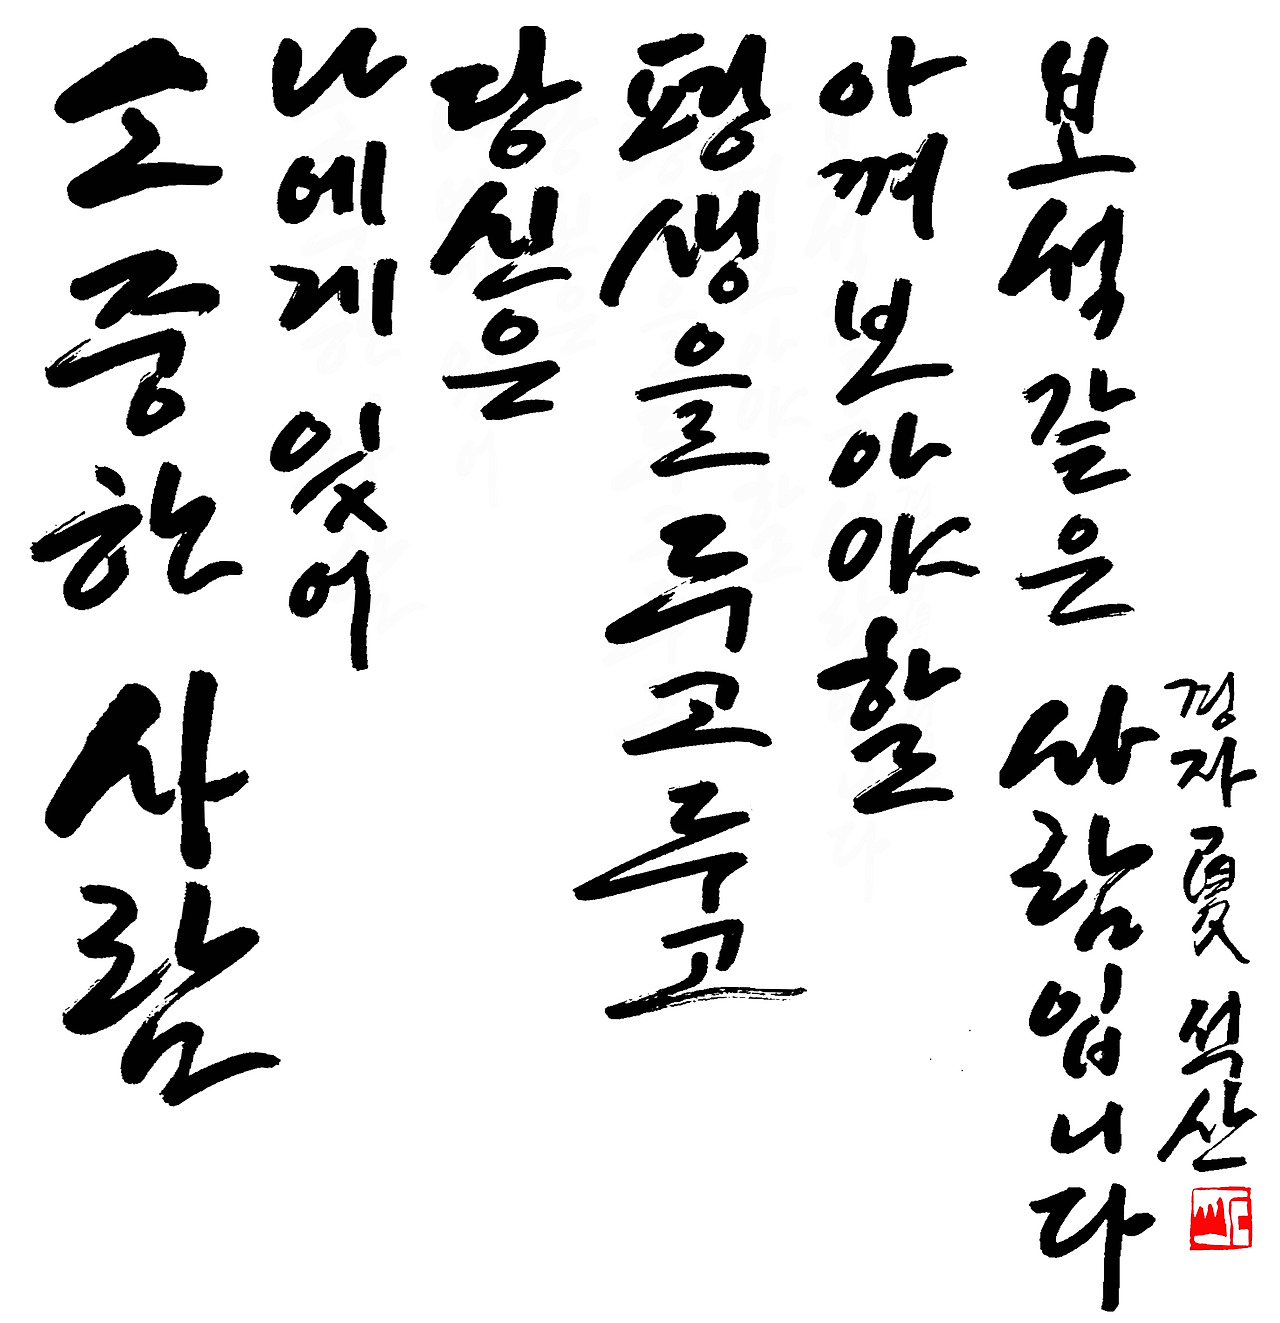 소중한 사람
나에게 있어
당신은
평생을 두고두고
아껴 보아야할
보석 같은 사람입니다
경자 夏 석산